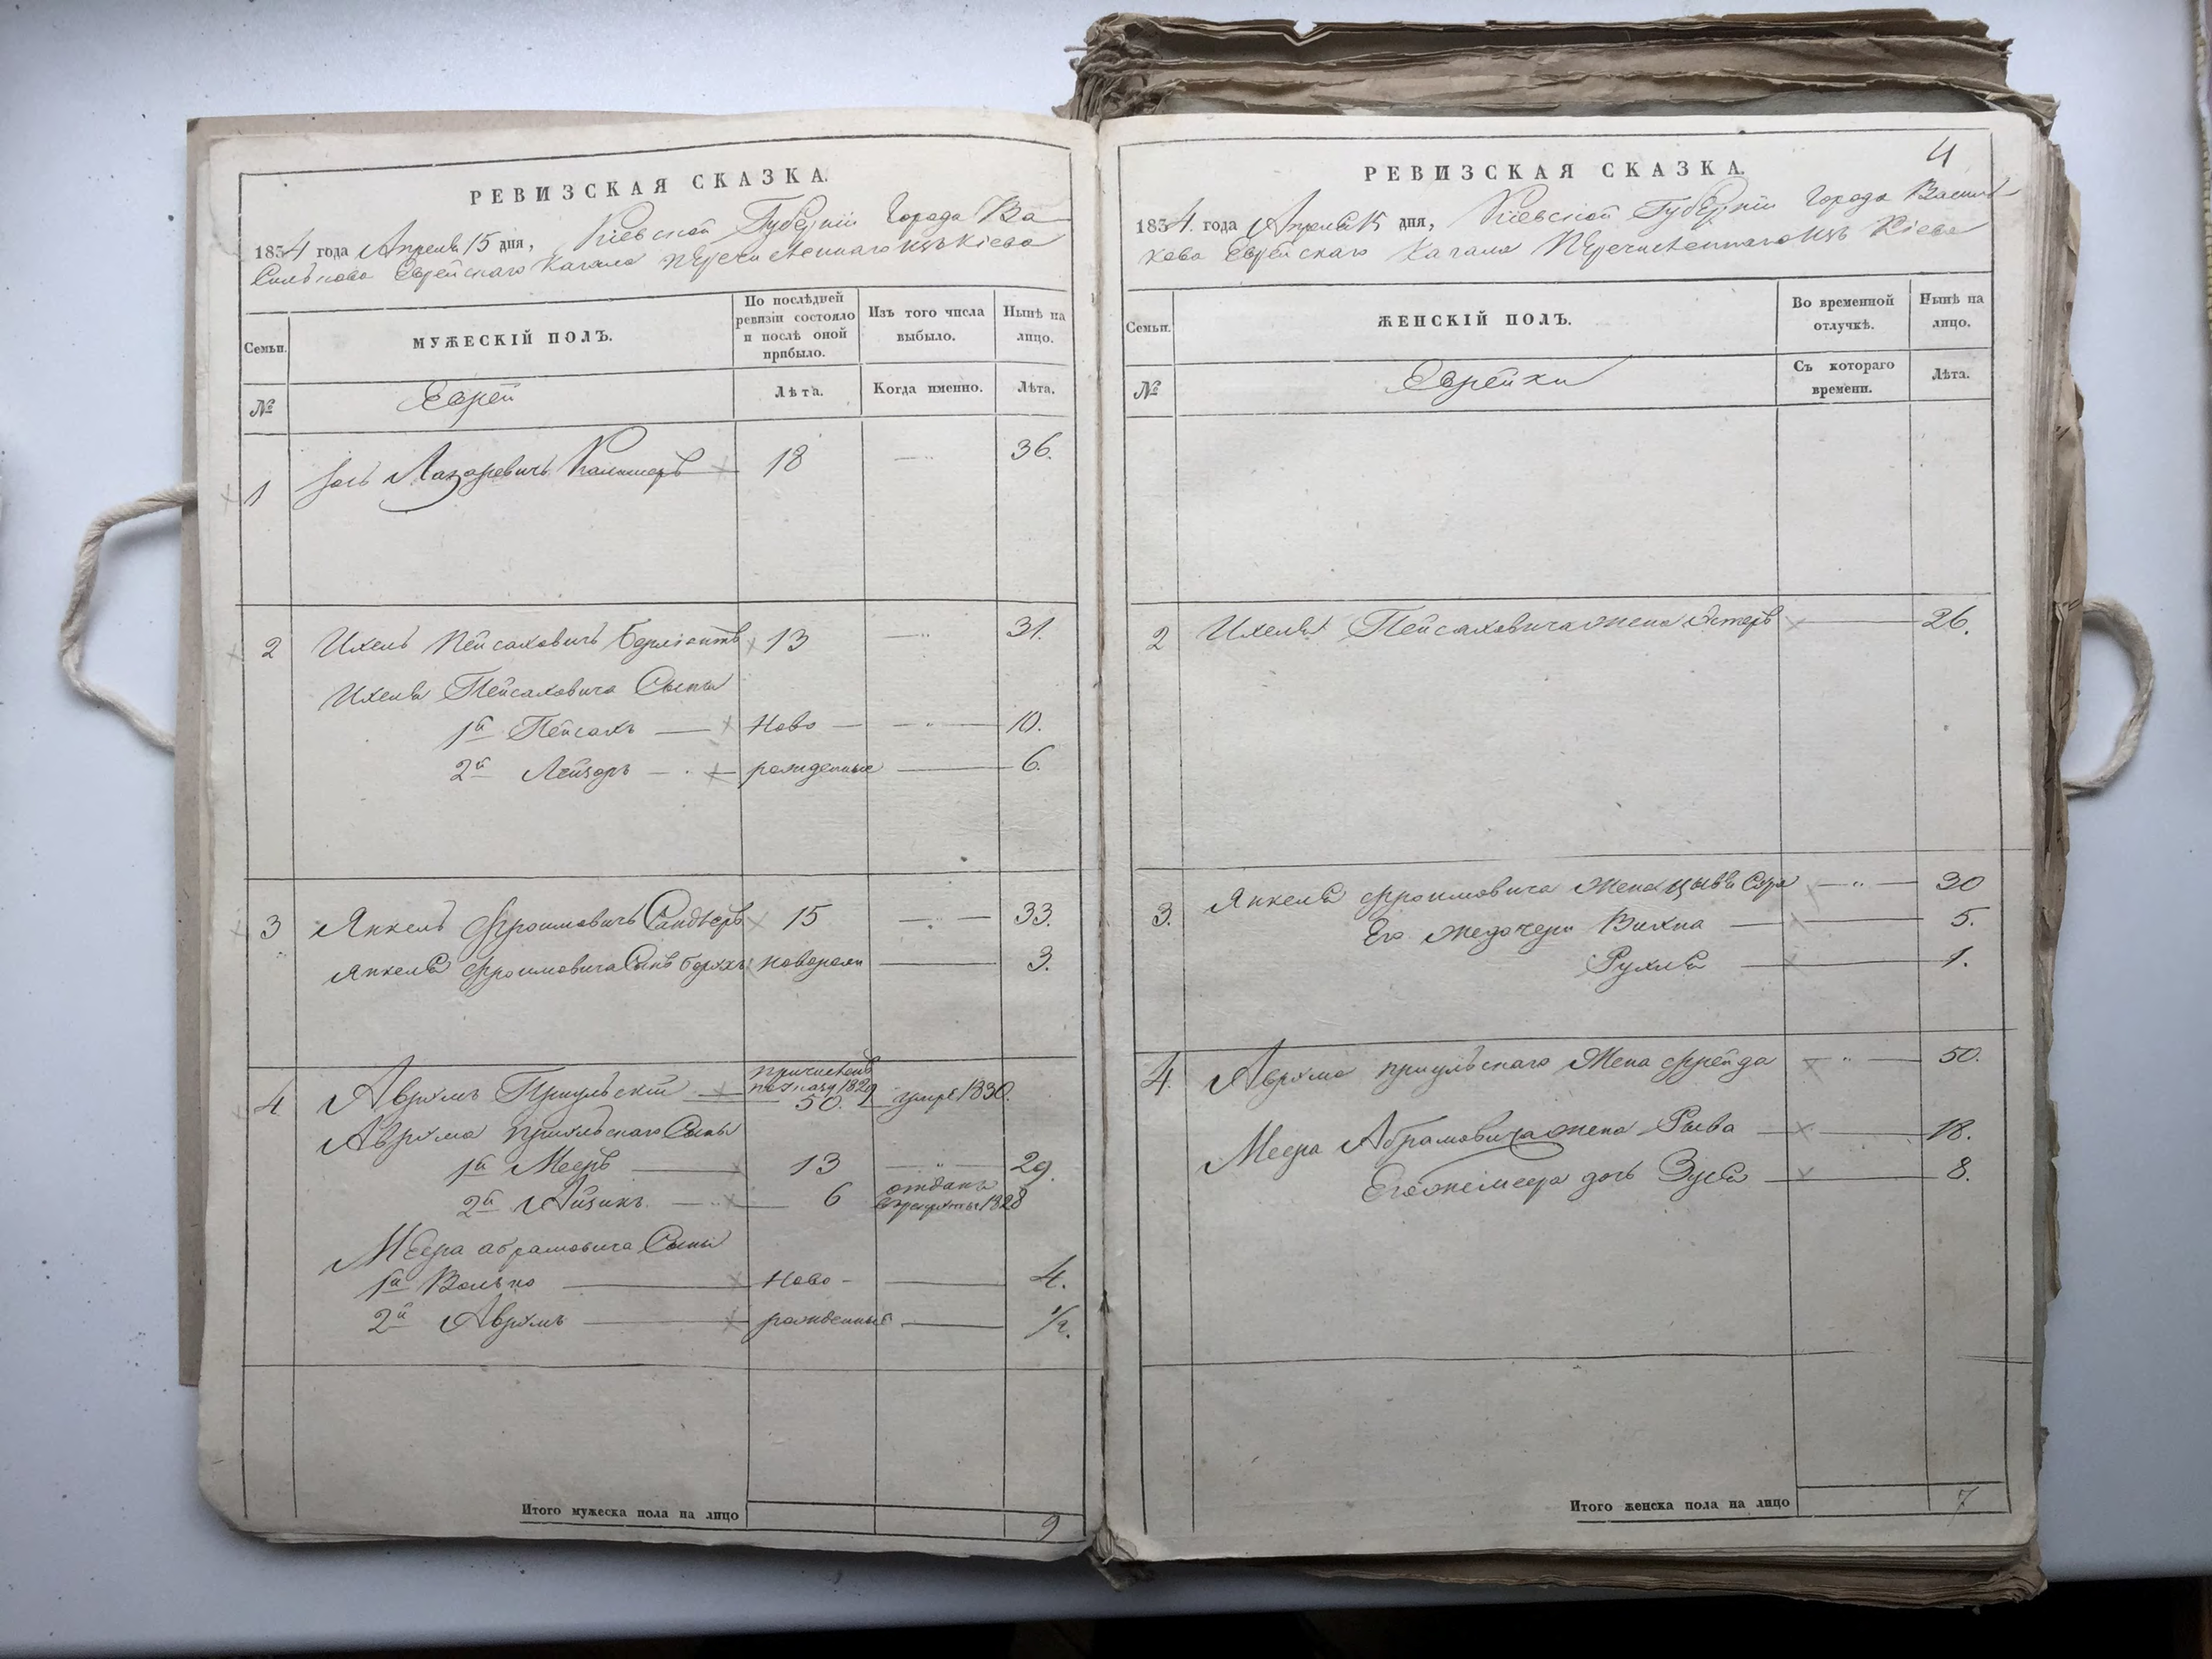 РЕВИЗСКАЯ СКАЗКА.
1834 года Апреля 15 дня, Кіевской Губерніи Города Ва
силькова Еврейскаго Кагала перечисленнаго изъ Кіева
Семьи.
МУЖЕСКІЙ ПОЛЪ.
По послѣдней ревизіи состояло и послѣ оной прибыло.
Изъ того числа выбыло.
Нынѣ на лицо.
№
Еврей
Лѣта.
Когда именно.
Лѣта.
1 Лазаревичъ 18 36.
2 Ихель Пейсаховичъ Берліантъ 13 31.
Ихеля Пейсаховича Сыны
1й Пейсахъ Ново 10.
2й Лейзоръ рожденные 6.
3 Янкель Фроимовичъ Сандлеръ 15 33.
Янкеля Фроимовича Сынъ Борохъ новорожд 3.
4 Аврумъ Пріульскій причисленъ по указу 1829 50. умре 1830.
Аврума Пріульскаго Сыны
1й Мееръ 13 29.
2й Айзикъ 6 отданъ в рекруты 1828
Меера Абрамовича Сыны
1й Волько Ново- 4.
2й Аврумъ рожденные 1/2.
Итого мужеска пола на лицо 9
4
РЕВИЗСКАЯ СКАЗКА.
1834. года Апреля 15 дня, Кіевской Губерніи Города Василь
кова Еврейскаго Кагала перечисленнаго изъ Кіева
Семьи.
ЖЕНСКІЙ ПОЛЪ.
Во временной отлучкѣ.
Нынѣ на лицо.
№
Еврейки
Съ котораго времени.
Лѣта.
2 Ихеля Пейсаховича жена Эстеръ 26.
3. Янкеля Фроимовича жена Цывья Сура 30
Его же дочери Вихна 5.
Рухля 1.
4. Аврума Пріульскаго Жена Фрейда 50.
Меера Абрамовича жена Рыва 18.
Его же Меера дочь Зуся 8.
Итого женска пола на лицо 7